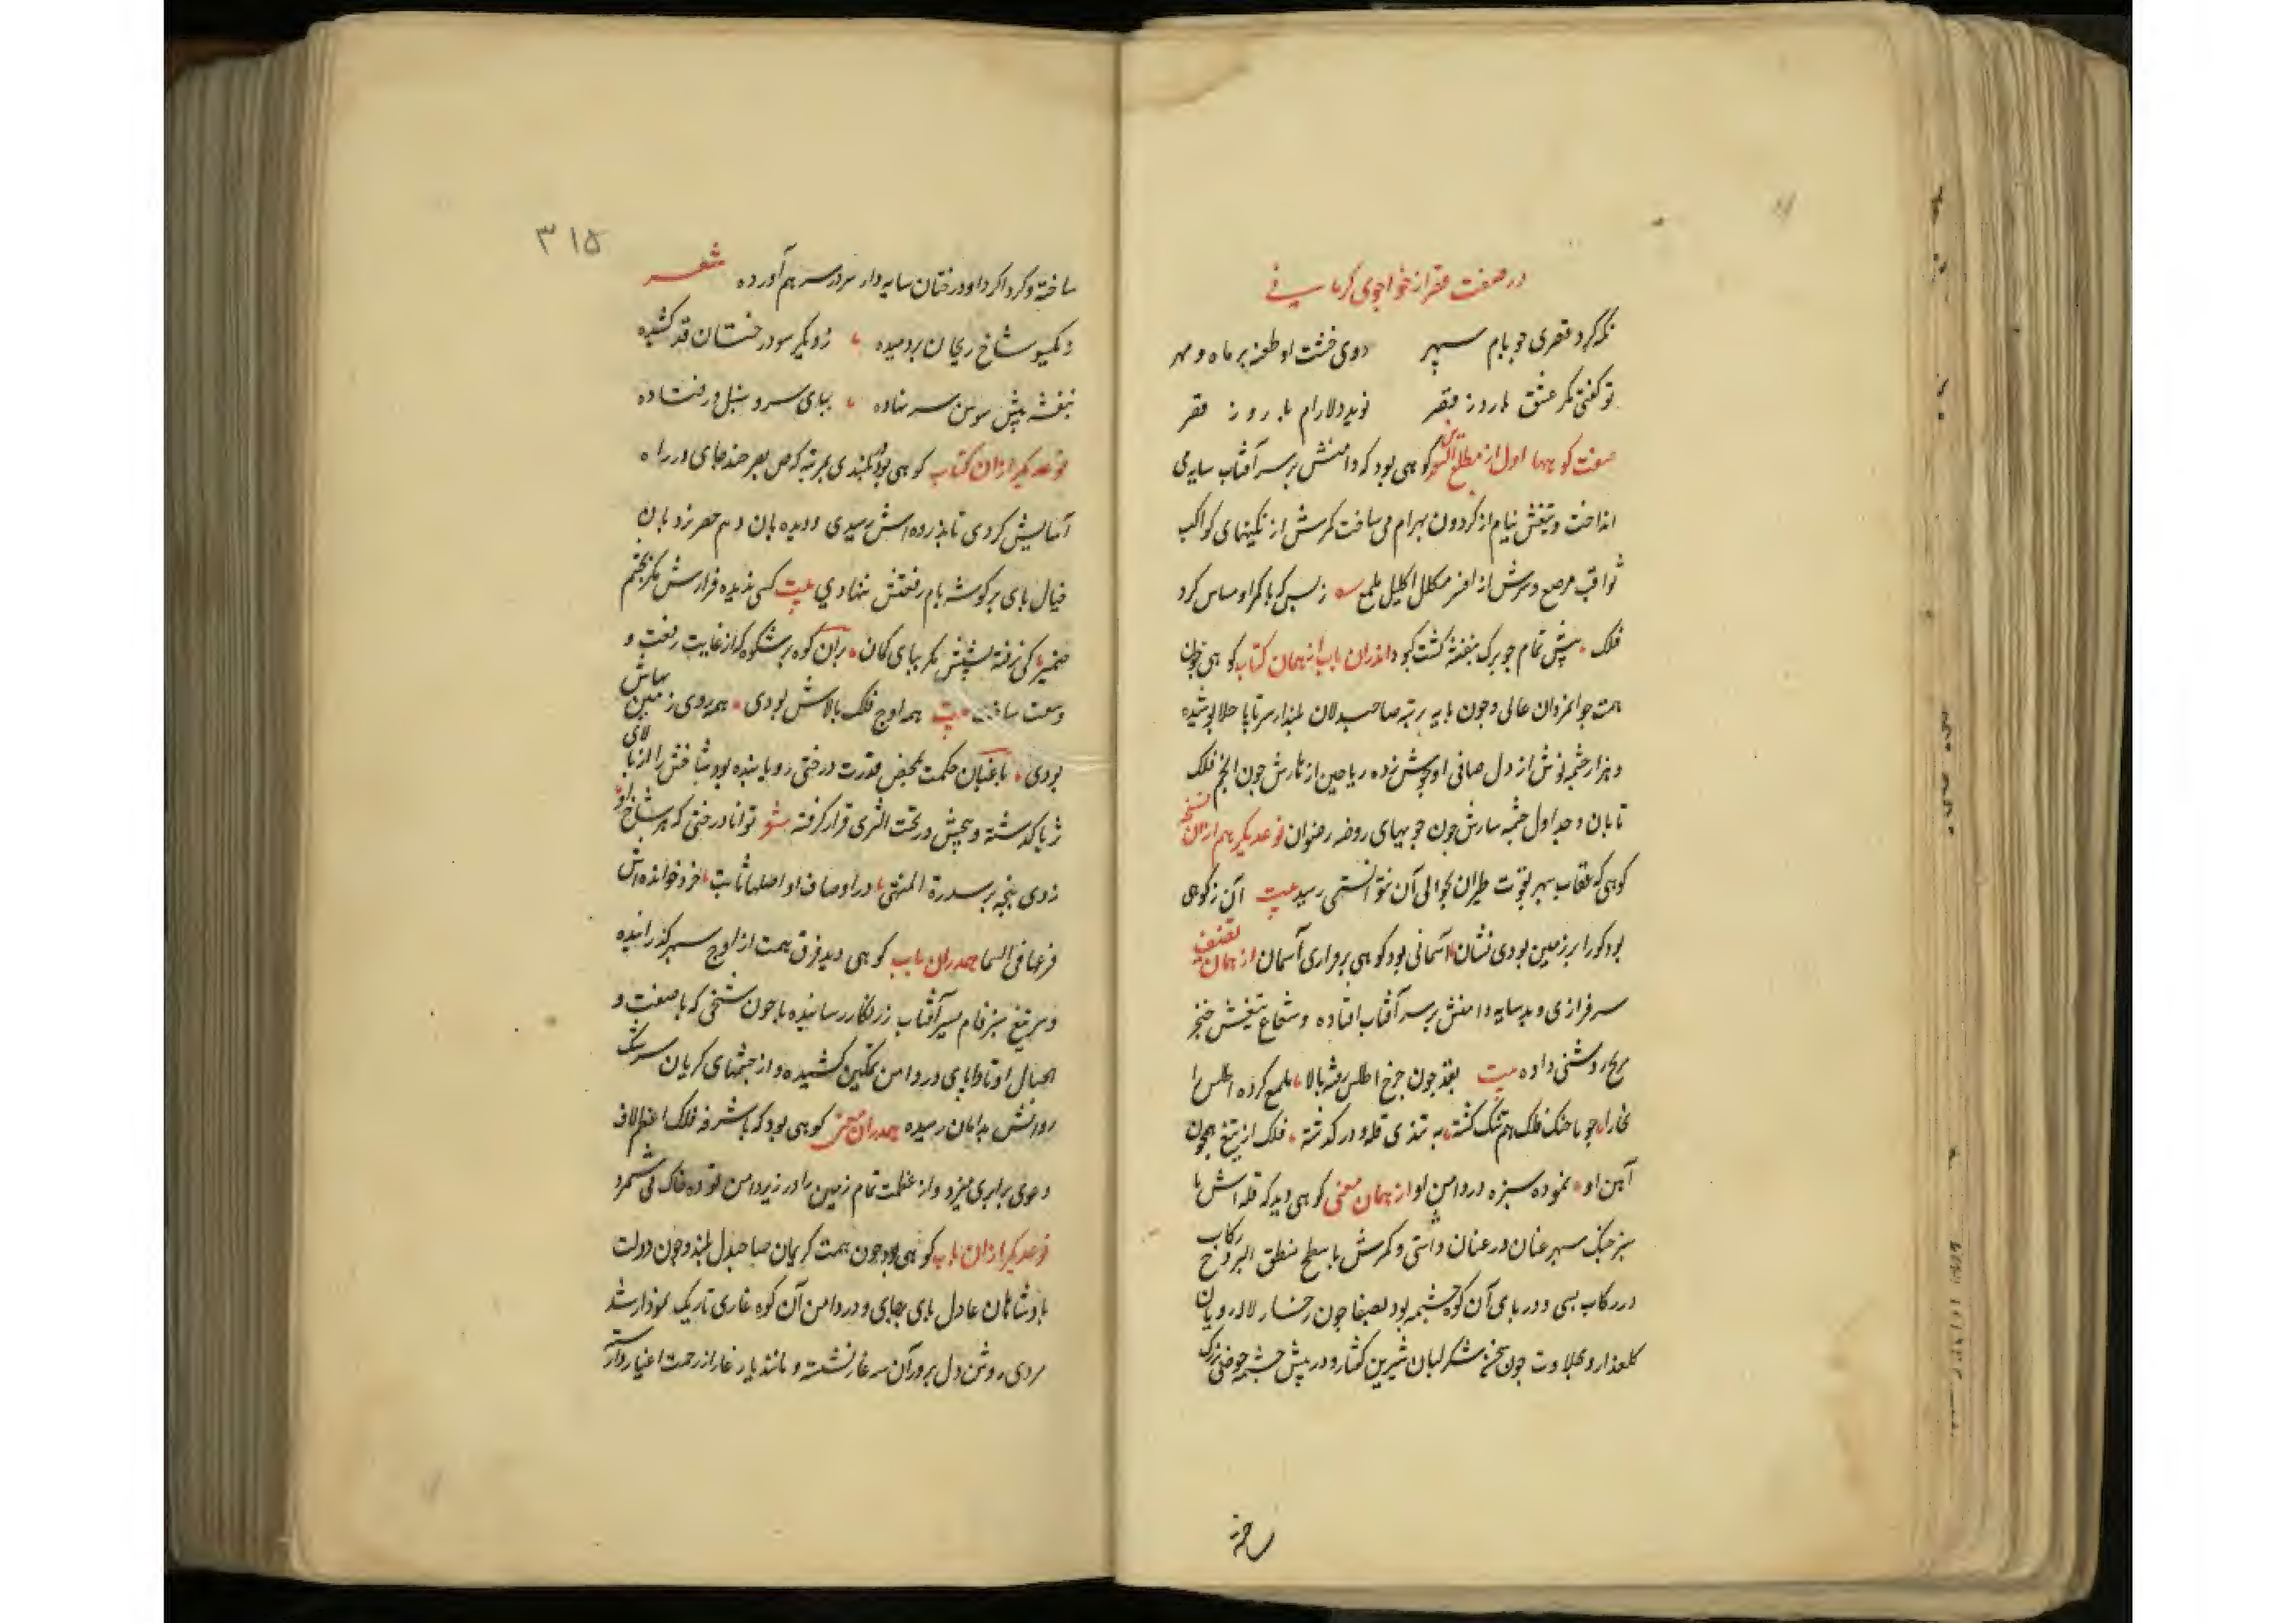 در صفت قصر از خواجوی کرمانی
نگه کرد قصری چو بام سپهر زدی خشت او طعنه بر ماه و مهر
تو گفتی مگر عشق بارو ز قصر نوید دلارام بارو ز قصر
صفت کوهها اول از مطلع کوهی بود که دامنش بر سر آفتاب سایه می
انداخت و تیغش نیام از گردون بهرام می ساخت کمرش از نگینهای کواکب
ثواقب مرصع و سرش از افسر مکلل اکلیل ملمع ز بس که با کمر او مساس کرد
فلک پیش تمام چو برگ بنفشه گشت کبود اندران باب از همان کتاب کوهی چون
همت جوانمردان عالی و چون پایه رتبه صاحبدلان بلند از سر تا پا حلا پوشیده
و هزار چشمه نوش از دل صافی او بجوش زده ریاحین از نارش چون انجم فلک
تابان و جداول چشمه سارش چون جویهای روضه رضوان نوعدیگر هم ازان نسخه
کوهی که عقاب سپهر بقوت طیران بحوالی آن نتوانستی رسید بیت آن ز کوهی
بود کورا بر زمین بودی نشان آسمانی بود کوهی بر فرازی آسمان از همان تصنیف
سرفرازی دید سایه دامنش بر سر آفتاب افتاده و شعاع تیغش خنجر
مریخ روشنی داده بیت بقد چون چرخ اطلس رفته بالا ملمع کرده اطلس را
بخارا چو با خنک فلک هم تنگ گشته به تندی قله و درگذشته فلک از تیغ همچون
آهن او نموده سبزه در دامن او از همان معنی کوهی دید که قله اش با
سبز خنک سپهر عنان در عنان داشتی و کمرش با سطح منطق البروج رکاب
در رکاب بسی و در پای آن کوه چشمه بود بصفا چون رخسار لاله رویان
گلعذار و بحلاوت چون سخن شکر لبان شیرین گفتار و در پیش چشمه حوضی بزرگ
ساخته
۳۱۵
ساخته و گرداگرد او درختان سایه دار سر در سر هم آورده شعر
ز یکسو شاخ ریحان بر دمیده ز دیگر سو درختان قد کشیده
بنفشه پیش سوسن سر نهاده بپای سرو سنبل در فتاده
نوعدیگر ازان کتاب کوهی بود بلندی بمرتبه که بصر صد جای در راه
آسایش کردی تا بذروه اش رسیدی و دیده بان وهم نردبان
خیال پای بر گوشه بام رفعتش ننهادی بیت کسی ندیده فرازش مگر بچشم
ضمیر کسی نرفته بشیبش مگر بپای گمان بران کوه پر شکوه که از غایت رفعت و
وسعت ساحت بیت همه اوج فلک بالاش بودی همه روی زمین پهناش
بودی باغبان حکمت بمحض قدرت درختی رویانیده بود شاخش از بالای
ثریا گذشته و بیخش در تحت الثری قرار گرفته توانا درختی که هر شاخ او
زدی پنجه بر سدرة المنتهی در اوصاف او اصلها ثابت خرد خوانده اش
فرعها فی السما همدران باب کوهی دید فرق همت از اوج سپهر گذرانیده
و سر تیغ سبز فام بسپر آفتاب زرنگار رسانیده یا چون شخی که با صفت و
الجبال اوتادا پای در دامن تمکین کشیده و از چشمهای گریان سرشک
روانش بدامان رسیده همدران معنی کوهی بود که با شرفه فلک اعظم لاف
دعوی برابری میزد و از عظمت تمام زمین را در زیر دامن توده خاک می شمرد
نوعدیگر ازان باب کوهی بود چون همت کریمان صاحبدل بلند و چون دولت
پادشاهان عادل پای بجای و در دامن آن کوه غاری تاریک نمودار شد
مردی روشن دل بر در آن سر غار نشسته و مانند یار غار از زحمت اغیار